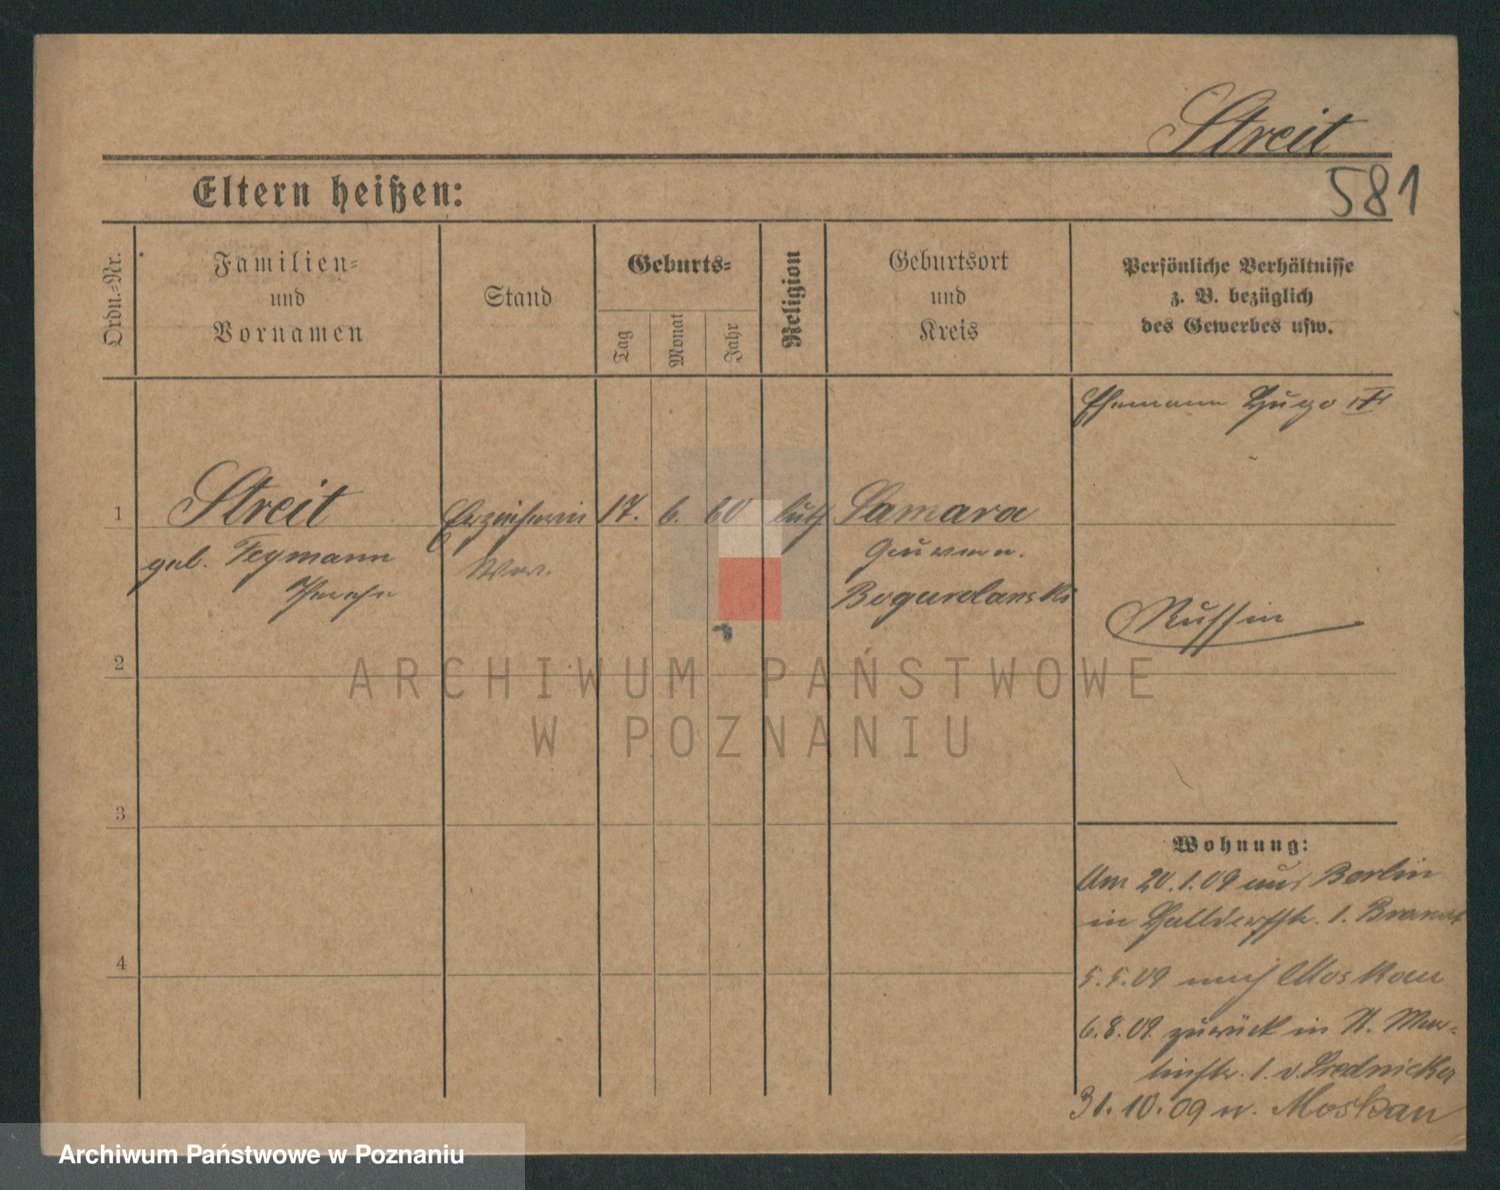 Streit
581
Eltern heißen:
Ordn.-Nr.
Familien-
und
Vornamen
Stand
Geburts-
Tag
Monat
Jahr
Religion
Geburtsort
und
Kreis
Persönliche Verhältnisse
z. B. bezüglich
des Gewerbes usw.
Ehemann Hugo
1
Streit
geb. Feymann
Erzieherin
17. 6. 60
luth
Samara
Gouvern.
Russin
2
3
4
Wohnung:
Am 20.1.09 aus Berlin
in 1.
5.5.09 nach Moskau
6.8.09 zurück in St. Mar-
tinstr. 1. v.
31.10.09 n. Moskau
ARCHIWUM PAŃSTWOWE
W POZNANIU
Archiwum Państwowe w Poznaniu